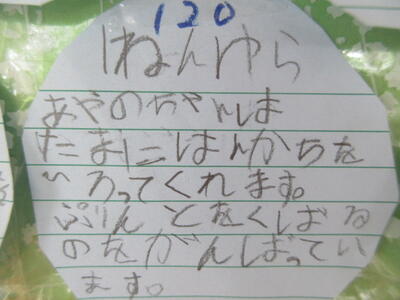 120
1ねんゆら
あやのちゃんしま
たまにはんかちを
いろってくれます。
ぷりんとをくばる
のをがんばってい
ます。